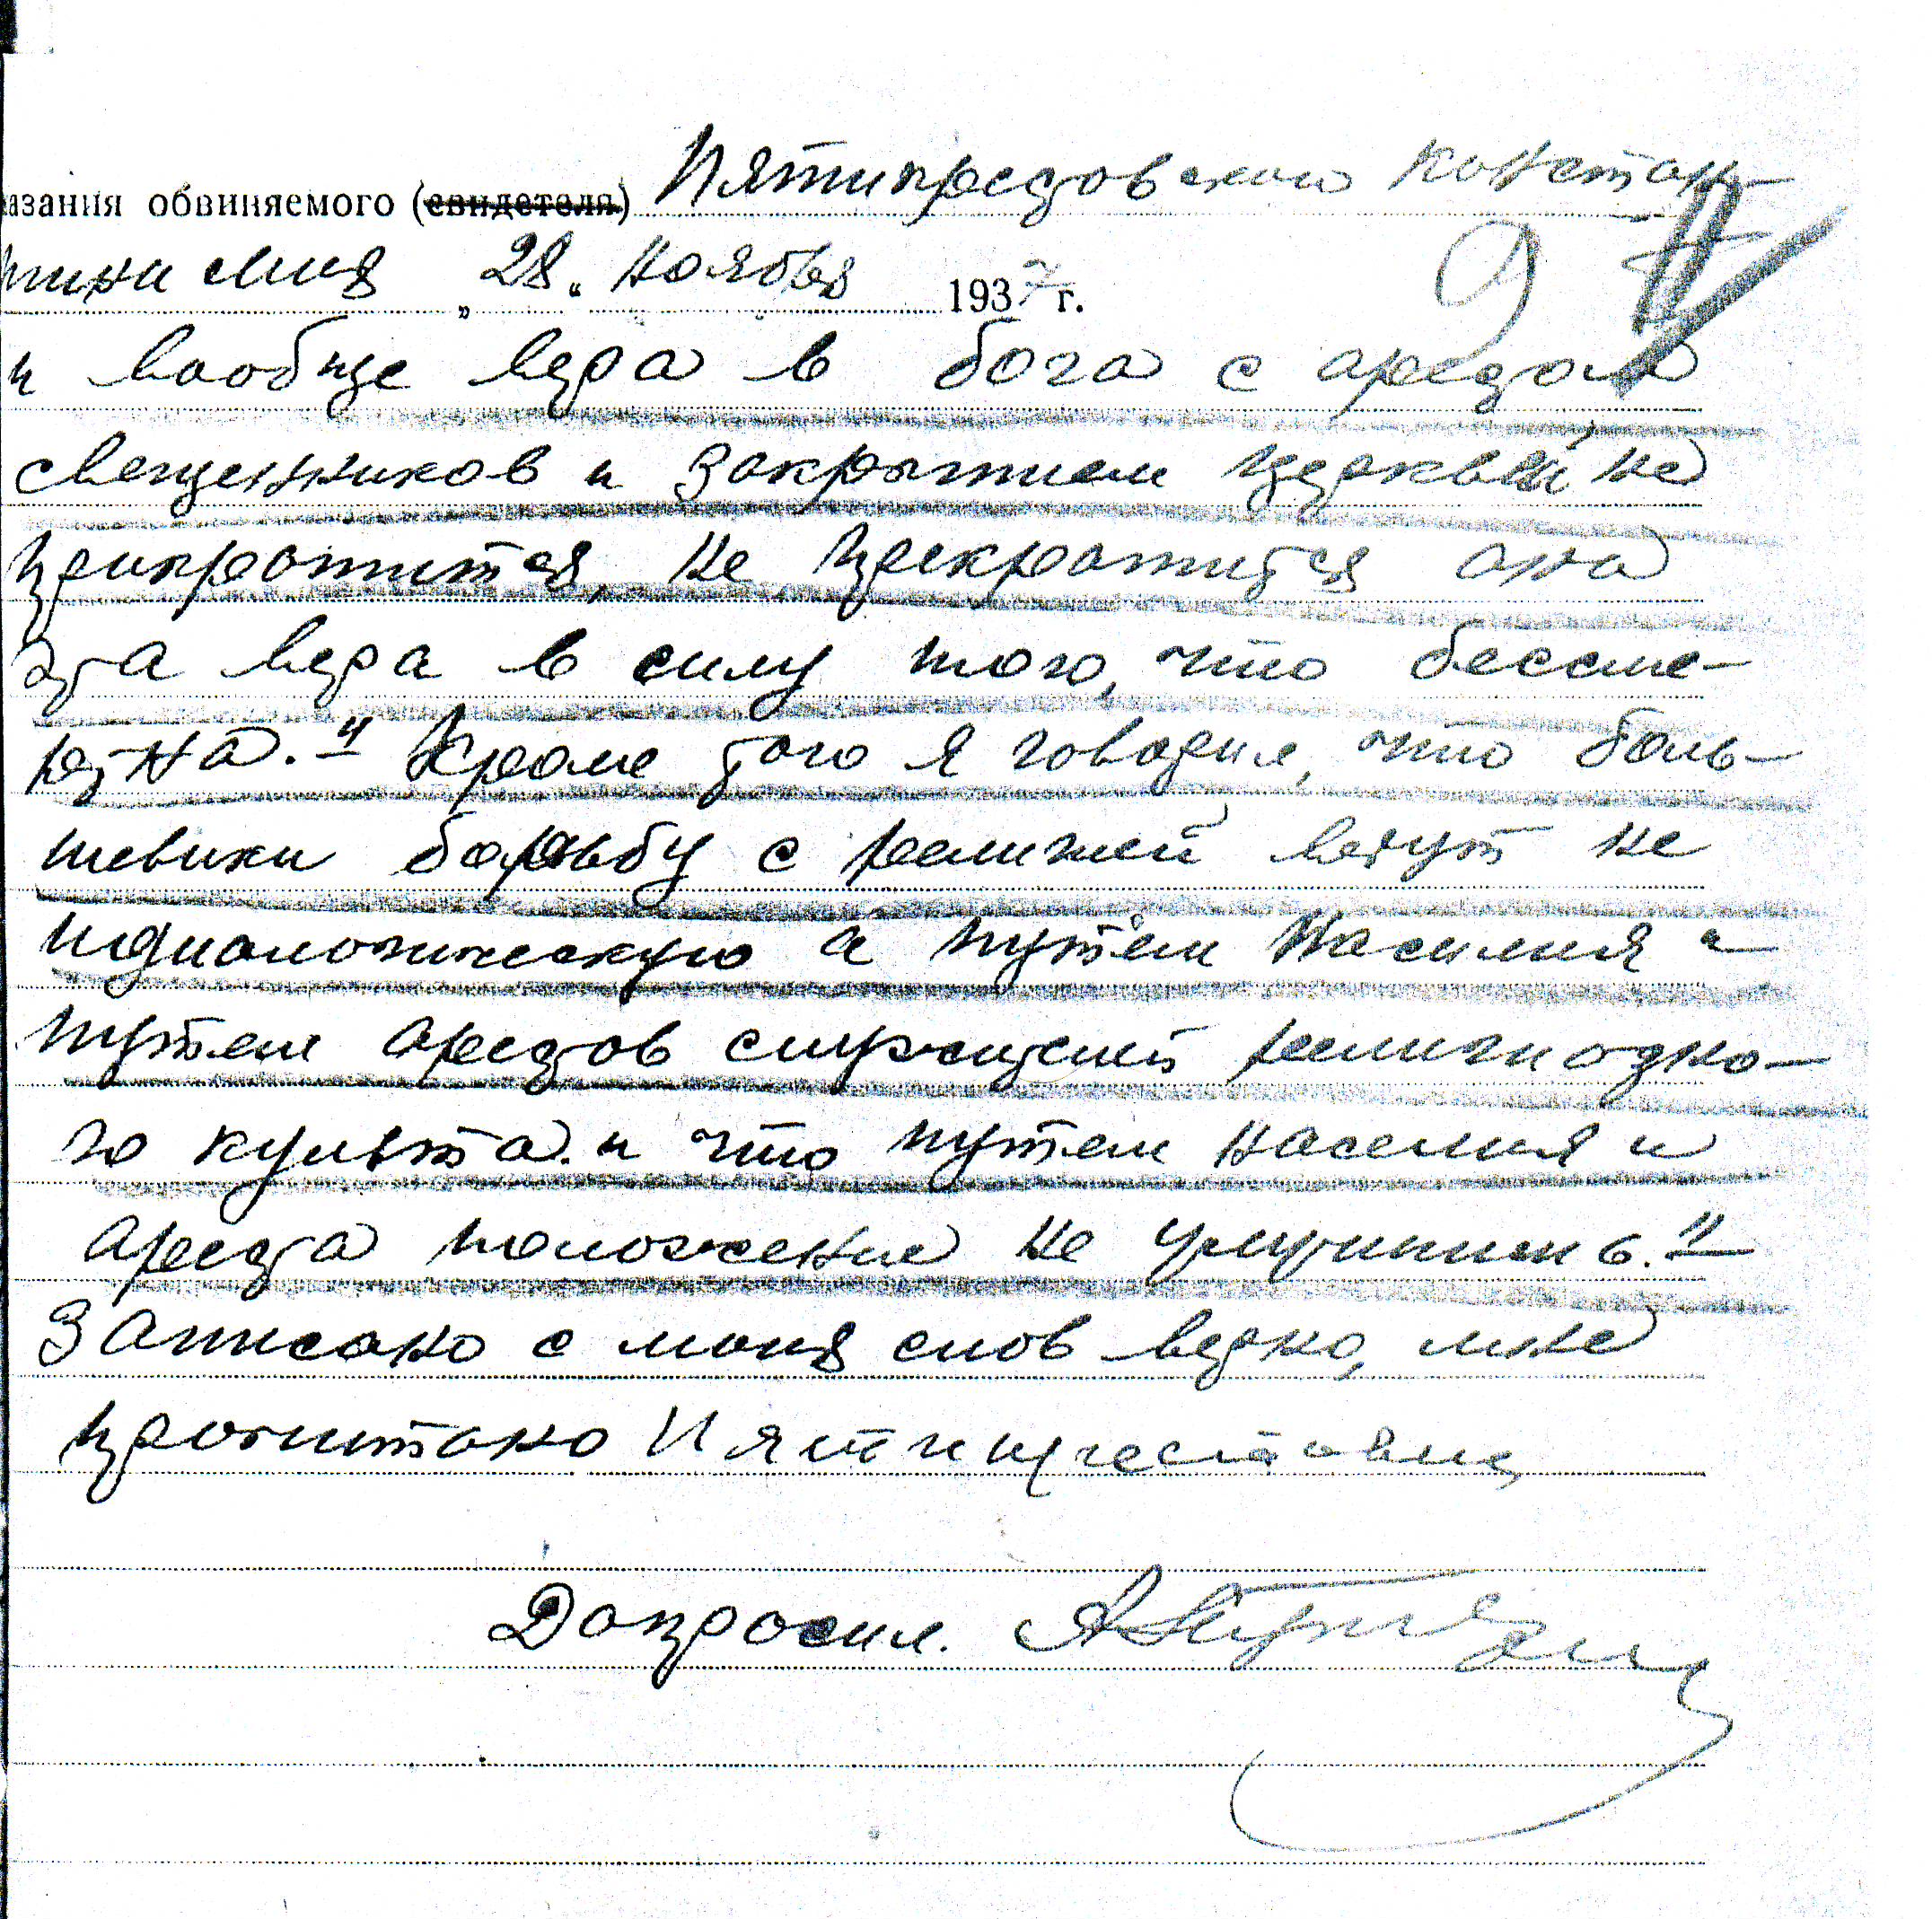 азания обвиняемого (свидетеля) Пятикрестовского Констан-
тина „28„ ноября 1937 г.
9
и вообще вера в бога с арестом
священников и закрытием церквей не
прикротится, не прекротится она
эта вера в силу того, что бессме-
ртна." Кроме того я говорил, что боль-
шевики борьбу с религией ведут не
идиологическую а путём насилия -
путем арестов служителей религиозно-
го культа. и что путем насилия и
ареста положение не улутшить."
Записано с моих слов верно, мне
прочитано Пятикрестовский
Допросил.